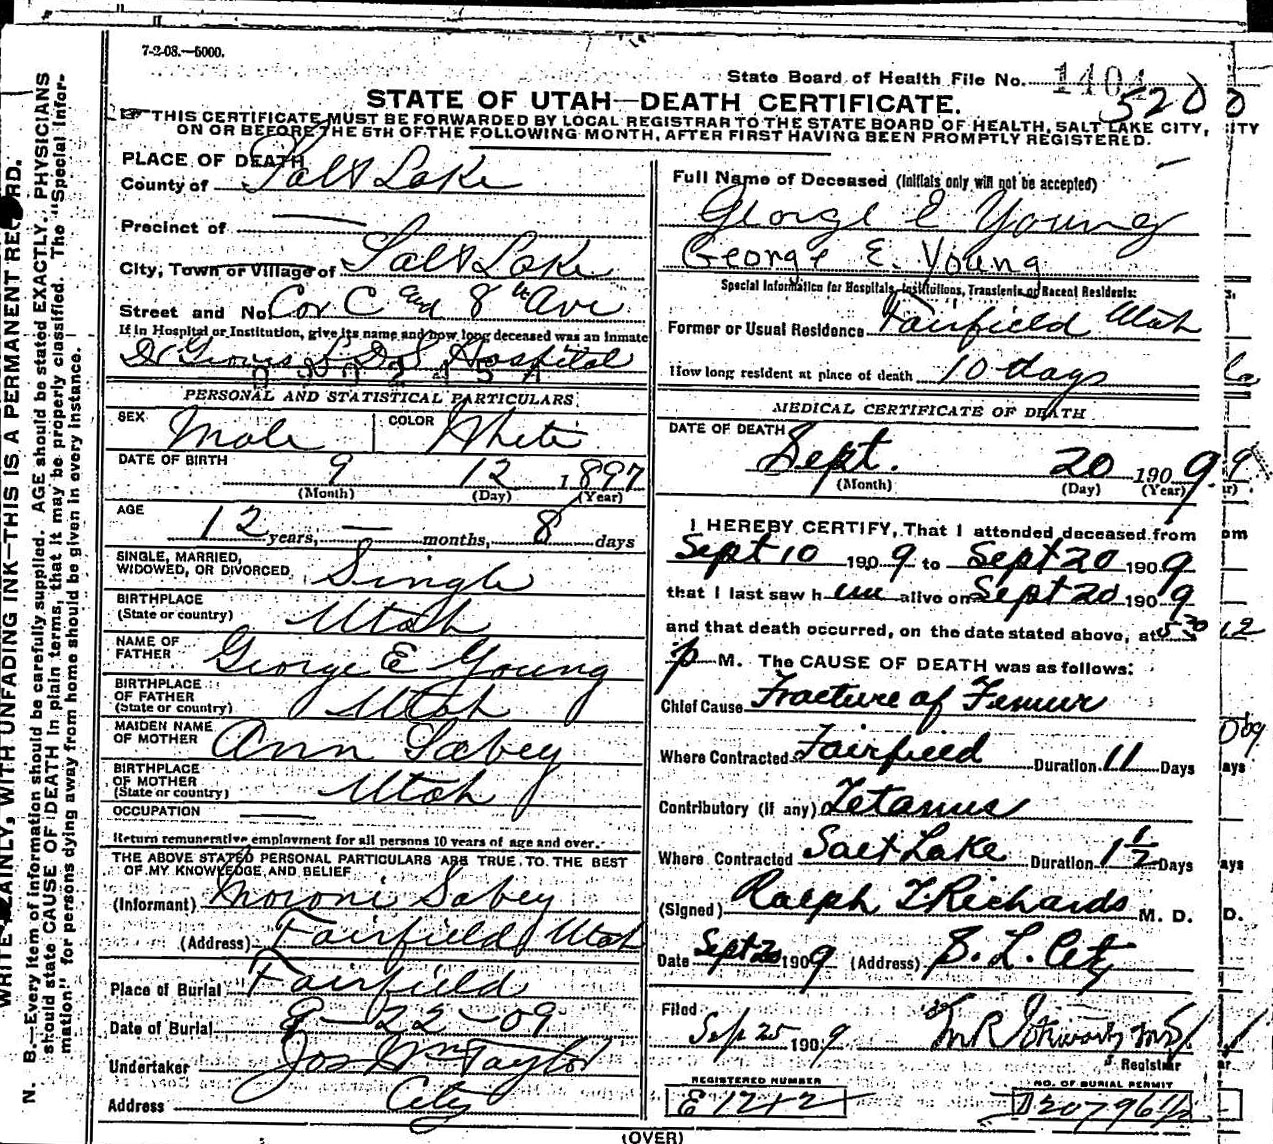 7-2-08.—5000.
State Board of Health File No. 1404
5200
STATE OF UTAH—DEATH CERTIFICATE.
THIS CERTIFICATE MUST BE FORWARDED BY LOCAL REGISTRAR TO THE STATE BOARD OF HEALTH, SALT LAKE CITY,
ON OR BEFORE THE 5TH OF THE FOLLOWING MONTH, AFTER FIRST HAVING BEEN PROMPTLY REGISTERED.
WRITE PLAINLY, WITH UNFADING INK—THIS IS A PERMANENT RECORD.
N. B.—Every item of information should be carefully supplied. AGE should be stated EXACTLY. PHYSICIANS
should state CAUSE OF DEATH in plain terms, that it may be properly classified. The "Special Infor-
mation" for persons dying away from home should be given in every instance.
PLACE OF DEATH
County of Salt Lake
Precinct of —
City, Town or Village of Salt Lake
Street and No. Cor C and 8th Ave
If in Hospital or Institution, give its name and how long deceased was an inmate
Dr Groves L.D.S Hospital
PERSONAL AND STATISTICAL PARTICULARS
SEX Male COLOR White
DATE OF BIRTH 9 12 1897
(Month) (Day) (Year)
AGE
12 years, — months, 8 days
SINGLE, MARRIED,
WIDOWED, OR DIVORCED Single
BIRTHPLACE
(State or country) Utah
NAME OF
FATHER George E Young
BIRTHPLACE
OF FATHER
(State or country) Utah
MAIDEN NAME
OF MOTHER Ann Sabey
BIRTHPLACE
OF MOTHER
(State or country) Utah
OCCUPATION —
Return remunerative employment for all persons 10 years of age and over.
THE ABOVE STATED PERSONAL PARTICULARS ARE TRUE TO THE BEST
OF MY KNOWLEDGE AND BELIEF
(Informant) Moroni Sabey
(Address) Fairfield Utah
Place of Burial Fairfield
Date of Burial 9-22-09
Undertaker Jos Wm Taylor
Address City
Full Name of Deceased (Initials only will not be accepted)
George E Young
George E. Young
Special Information for Hospitals, Institutions, Transients or Recent Residents:
Former or Usual Residence Fairfield Utah
How long resident at place of death 10 days
MEDICAL CERTIFICATE OF DEATH
DATE OF DEATH
Sept. 20 1909
(Month) (Day) (Year)
I HEREBY CERTIFY, That I attended deceased from
Sept 10 1909 to Sept 20 1909
that I last saw h im alive on Sept 20 1909
and that death occurred, on the date stated above, at 5 30
p M. The CAUSE OF DEATH was as follows:
Chief Cause Fracture of Femur
Where Contracted Fairfield Duration 11 Days
Contributory (if any) Tetanus
Where Contracted Salt Lake Duration 1 1/2 Days
(Signed) Ralph T Richards M. D.
Date Sept 20 1909 (Address) S. L. City
Filed
Sep 25 1909
Registrar
REGISTERED NUMBER
E 1212
NO. OF BURIAL PERMIT
D 20796 1/2
(OVER)